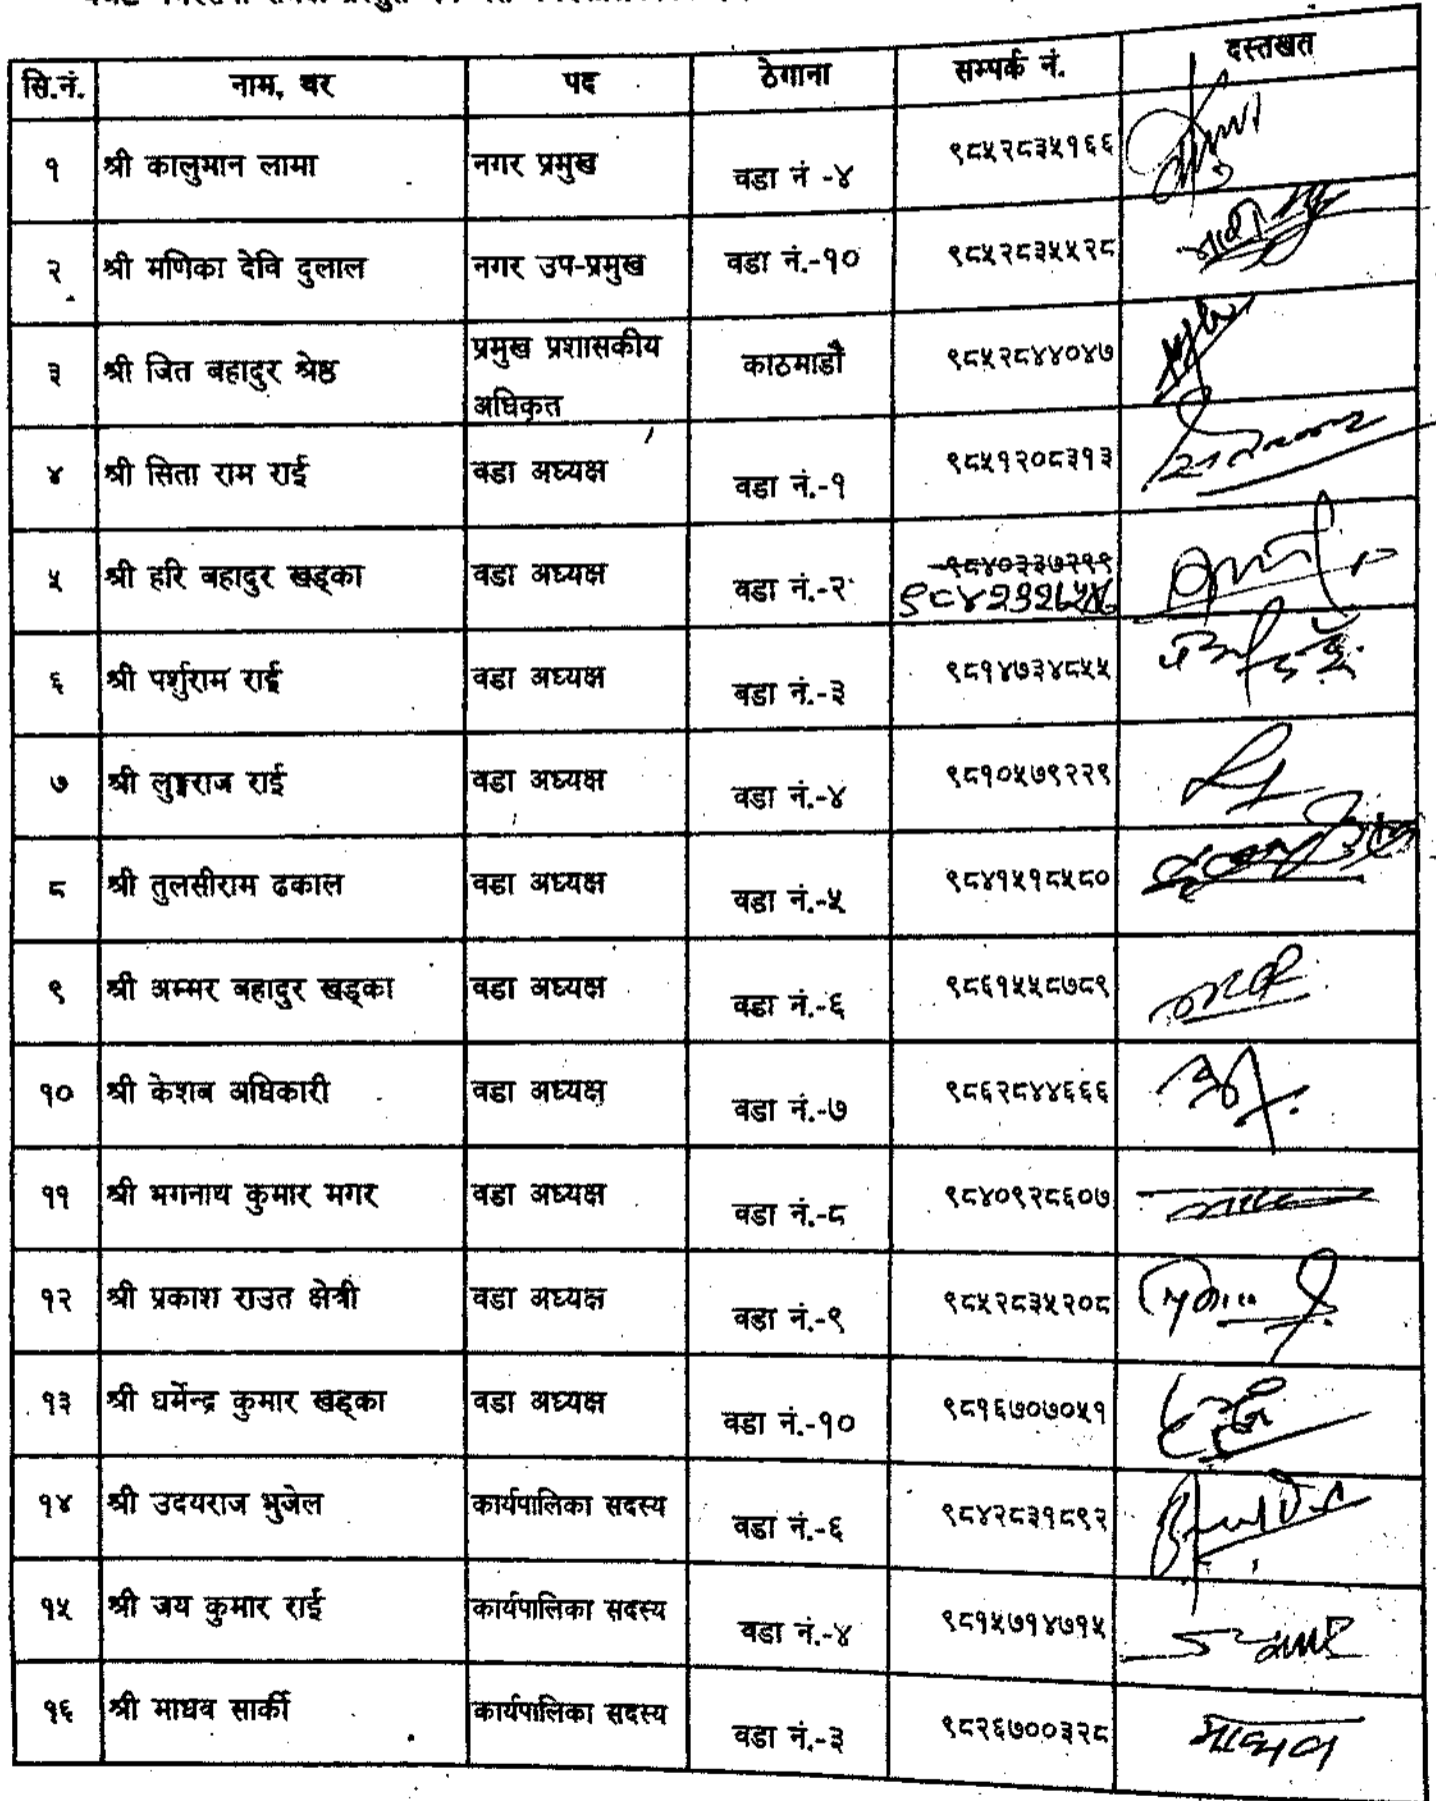 सि.नं. नाम, थर पद ठेगाना सम्पर्क नं. दस्तखत
१ श्री कालुमान लामा नगर प्रमुख वडा नं -४ ९८५२८३५१६६
२ श्री मणिका देवि दुलाल नगर उप-प्रमुख वडा नं.-१० ९८५२८३५५२८
३ श्री जित बहादुर श्रेष्ठ प्रमुख प्रशासकीय काठमाडौ ९८५२८४४०४७
अधिकृत
४ श्री सिता राम राई वडा अध्यक्ष वडा नं.-१ ९८५१२०८३१३
५ श्री हरि बहादुर खड्का वडा अध्यक्ष वडा नं.-२
६ श्री पर्शुराम राई वडा अध्यक्ष वडा नं.-३ ९८१४७३४८५५
७ श्री राई वडा अध्यक्ष वडा नं.-४ ९८१०५७९२२९
८ श्री तुलसीराम ढकाल वडा अध्यक्ष वडा नं.-५ ९८४१५१८५८०
९ श्री अम्मर बहादुर खड्का वडा अध्यक्ष वडा नं.-६ ९८६१५५८७८९
१० श्री केशब अधिकारी वडा अध्यक्ष वडा नं.-७ ९८६२८४४६६६
११ श्री भगनाथ कुमार मगर वडा अध्यक्ष वडा नं.-८ ९८४०९२८६०७
१२ श्री प्रकाश राउत क्षेत्री वडा अध्यक्ष वडा नं.-९ ९८५२८३५२०८
१३ श्री धर्मेन्द्र कुमार खड्का वडा अध्यक्ष वडा नं.-१० ९८१६७०७०५१
१४ श्री उदयराज भुजेल कार्यपालिका सदस्य वडा नं.-६ ९८४२८३१८९२
१५ श्री जय कुमार राई कार्यपालिका सदस्य वडा नं.-४ ९८१५७१४७१५
१६ श्री माधव सार्की कार्यपालिका सदस्य वडा नं.-३ ९८२६७००३२८ माधव